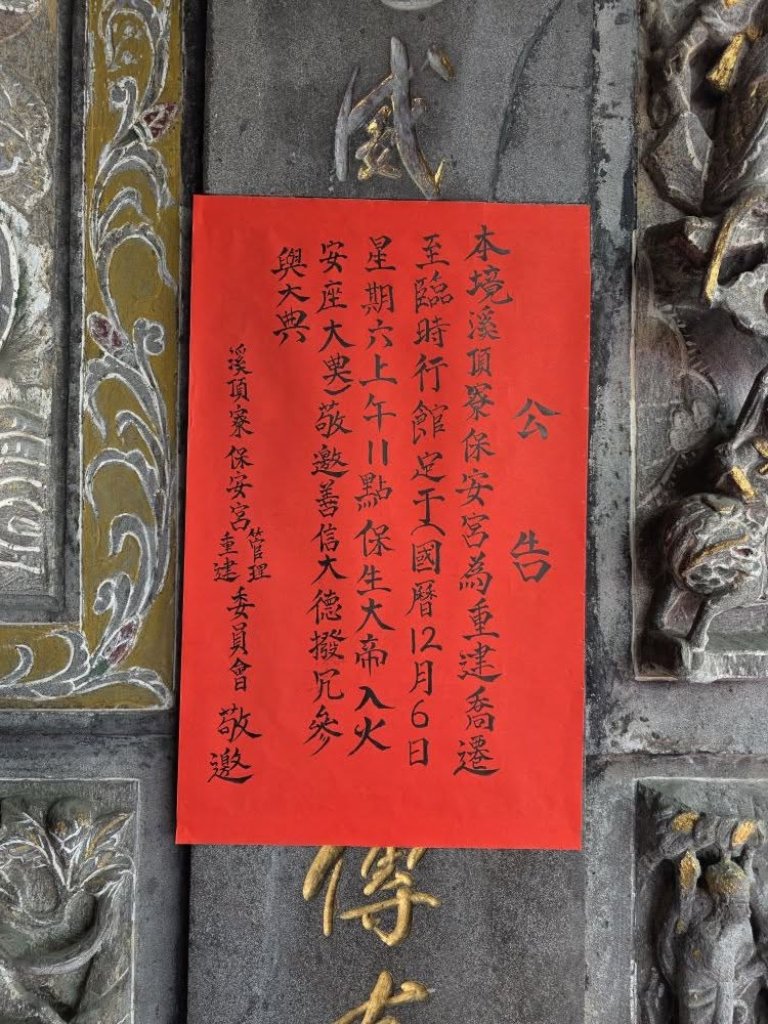 公告
本境溪頂寮保安宮為重建喬遷
至臨時行館定于(國曆12月6日
星期六上午11點保生大帝入火
安座大典)敬邀善信大德撥冗參
與大典
溪頂寮保安宮管理重建委員會敬邀
威
傳